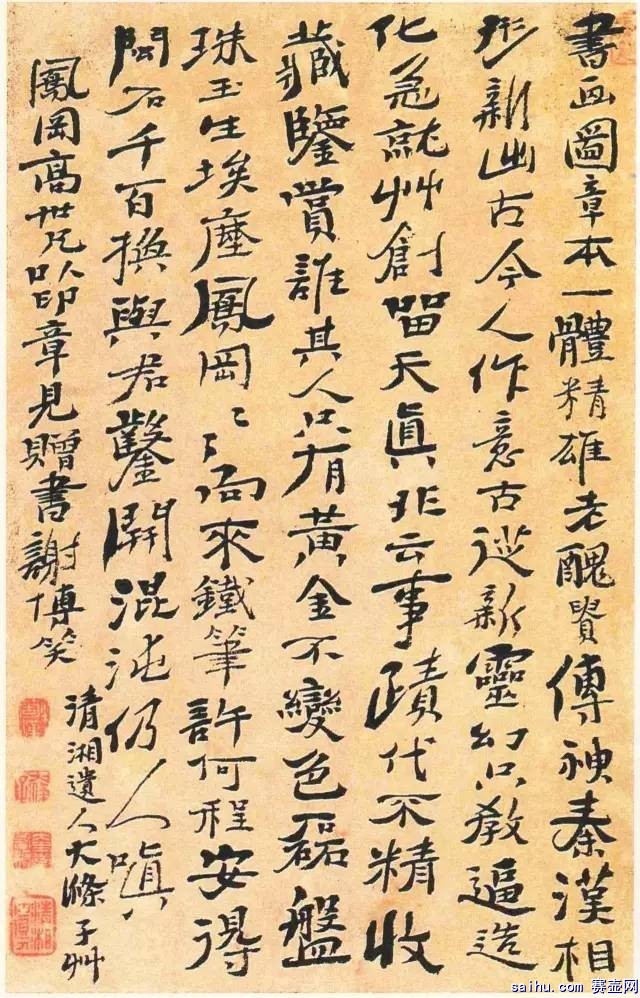 書画圖章本一體精雄老醜貴傳神秦漢相
形新出古今人作意古從新靈幻只教逼造
化急就艸創留天真非云事蹟代不精收
藏鑒賞誰其人只有黄金不變色磊盤
珠玉生埃塵鳳岡〻〻向來鐵筆許何程安得
閒石千百換與君鑿開混沌仍人嗔
鳳岡高世兄以印章見贈書謝博笑
清湘遺人大滌子艸
saihu.com 赛壶网